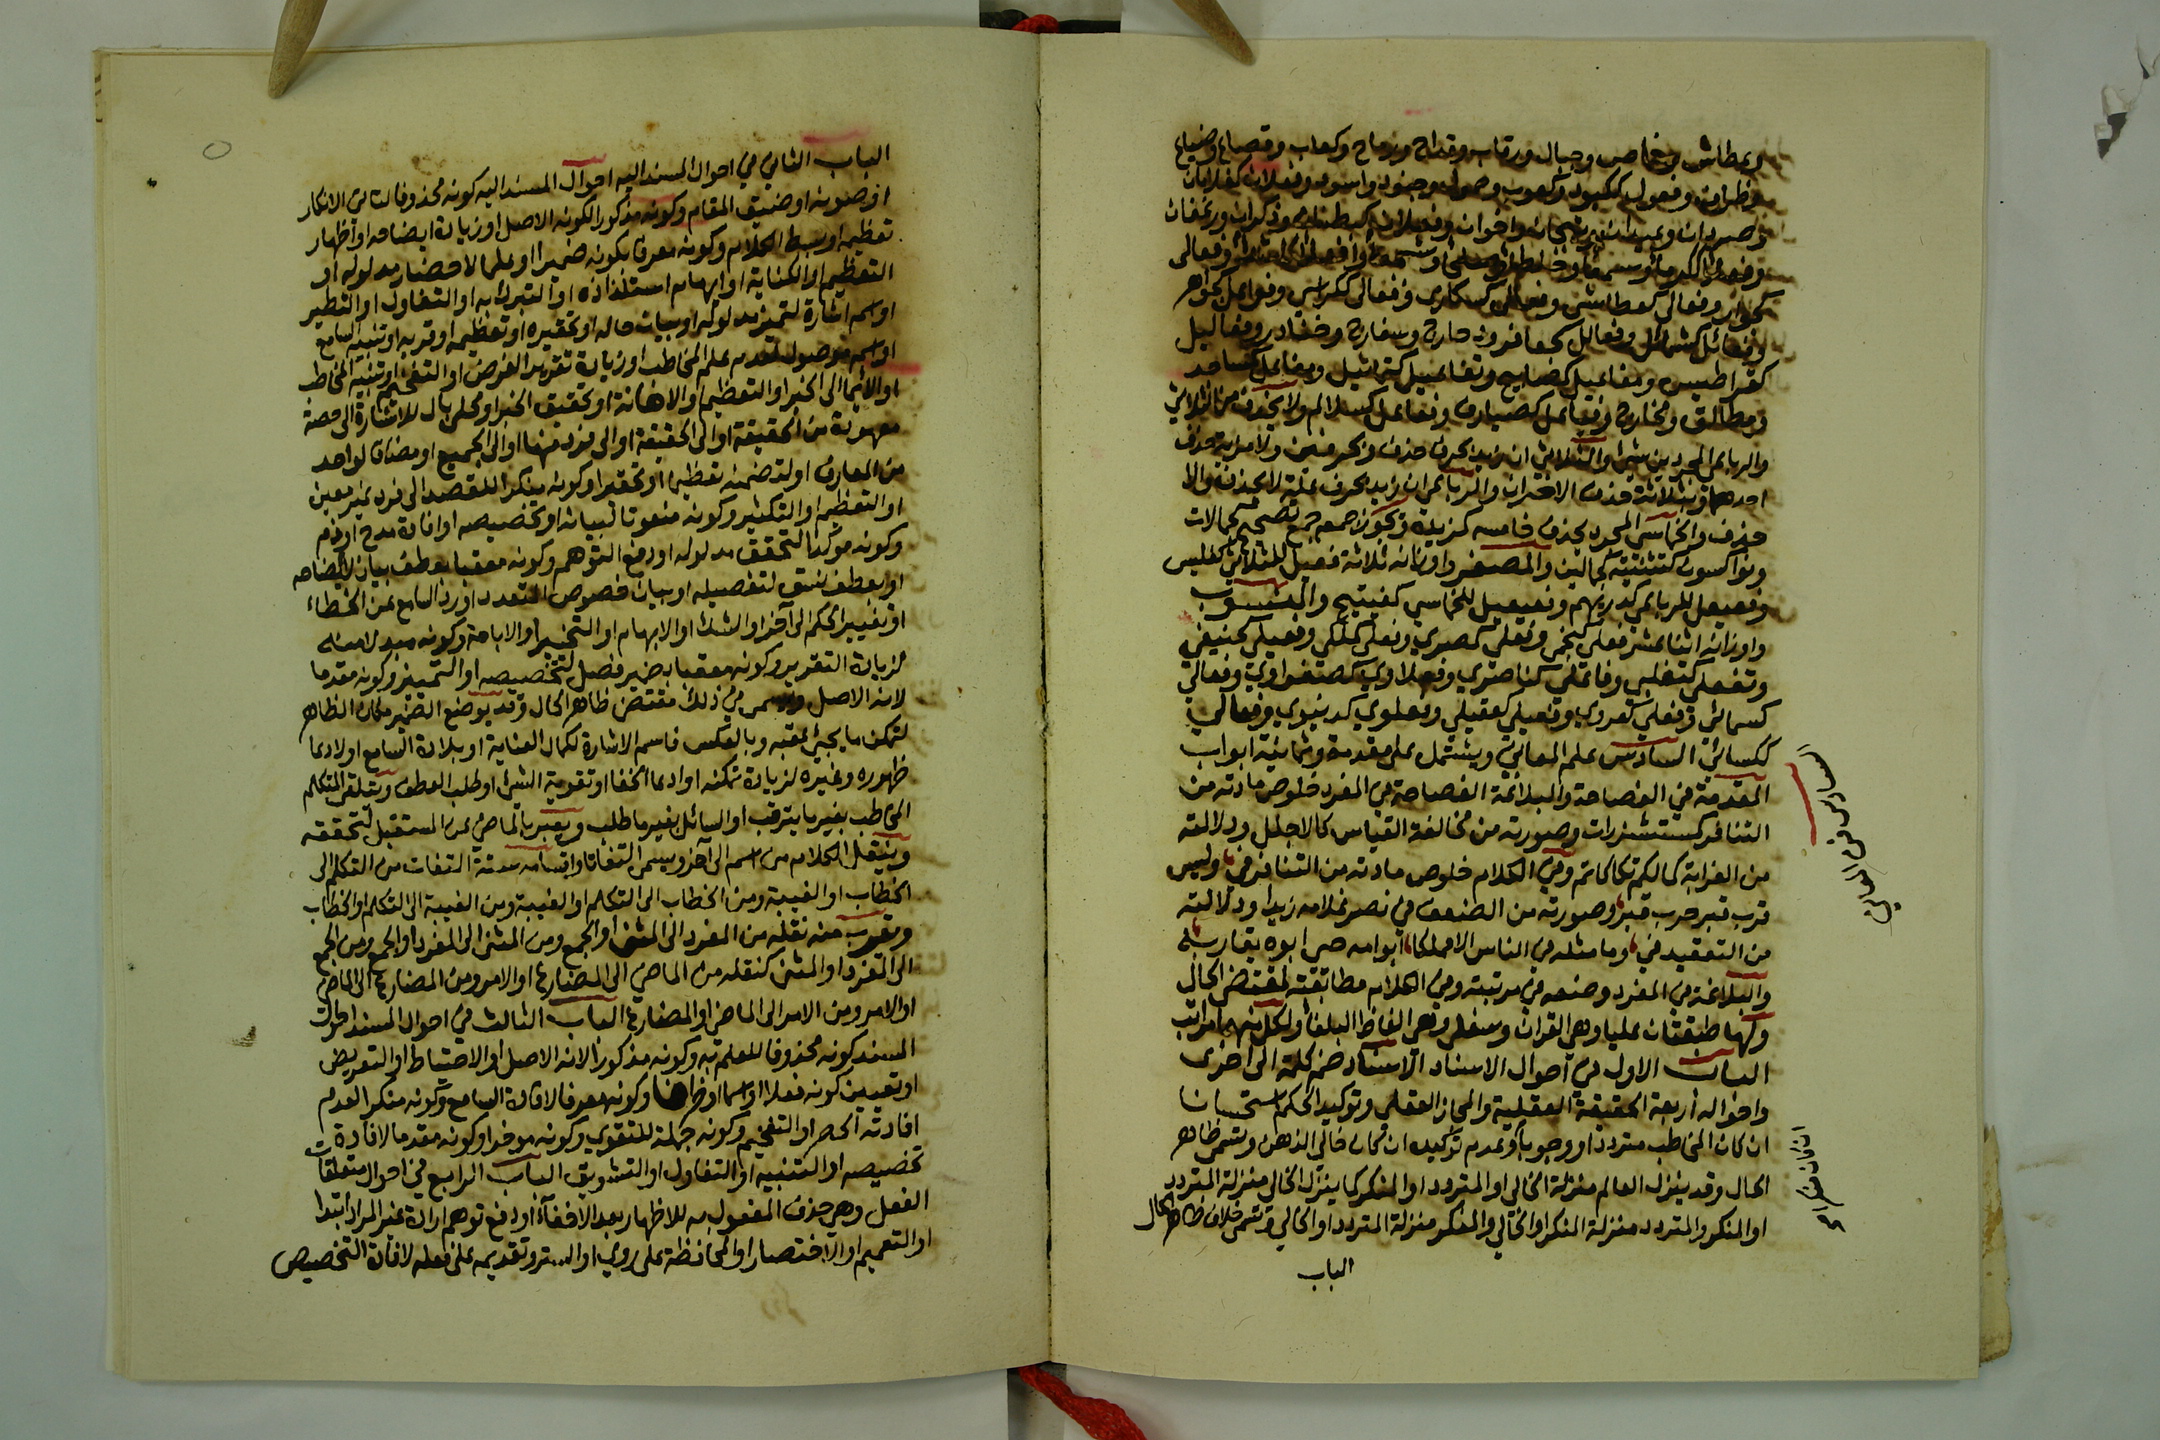 وعطاش وخماص وجبال ورقاب وقداح ورماح وكعاب وقصاع وضباع
وظراف وفعول ككبود وكعوب وحمول وجنود واسود وفعلان كغلمان
وصردان وعيدان وتيجان واخوان وفعلان كبطنان وذكران ورغفان
كجوار وفعالى كعطاشى وفعالى كسكارى وفعالي ككراسي وفواعل كجواهر
وفعائل كشمائل وفعالل كجعافر ودحارج وسفارج وخنادر وفعاليل
كقراطيس ومفاعيل كمصابيح وتفاعيل كتماثيل ومفاعل كمساجد
ومطالق ومخارج وفياعل كصيارف وفعاعل كسلالم ولا يحذف من الثلاثي
والرباعي المجردين شيأ والثلاثي ان زيد بحرف حذف وبحرفين ولا مزية حذف
احدهما وبثلاثة حذف الاخيران والرباعي ان زيد بحرف علة لا يحذف والا
حذف والخماسي المجرد يحذف خامسه كمزيده ويجوز جمعه جمع تصحيح كجمالات
ونواكسون كتثنيته كجمالين والمصغر واوزانه ثلاثة فعيل للثلاثي كفليس
وفعيعل للرباعي كدريهم وفعيعيل للخماسي كفيتيح والمنسوب
واوزانه اثنا عشر فعلي كنجمي وفعلي كصردي وفعلي كملكي وفعيلي كحنيفي
وتفعلي كتغلبي وفاعلي كناصري وفعلاوي كصفراوي وفعالي
كسمائي وفعلي كعروي وفعيلي كعقيلي وفعلوي كدنيوي وفعالي
ككسائي السادس علم المعاني ويشتمل على مقدمة وثمانية ابواب
المقدمة في الفصاحة والبلاغة الفصاحة في المفرد خلوص مادته من
التنافر كمستشزرات وصورته من مخالفة القياس كالاجلل ودلالته
من الغرابة كمالكم تكاكاتم وفي الكلام خلوص مادته من التنافر في وليس
قرب قبر حرب قبر وصورته من الضعف في نصر غلامه زيدا ودلالته
من التعقيد في وما مثله في الناس الا مملكا ابو امه حي ابوه يقاربه
والبلاغة في المفرد وضعه في مرتبته وفي الكلام مطابقته لمقتضى الحال
ولها طبقتان عليا وهي القرآن وسفلى وهي الفاظ البلغا ولكل منهما مراتب
الباب الاول في احوال الاسناد الاسناد ضم كلمة الى اخرى
واحواله اربعة الحقيقة العقلية والمجاز العقلي وتوكيد الحكم استحسانا
ان كان المخاطب مترددا او وجوبا وعدم توكيده ان كان خالي الذهن وتسمى ظاهر
الحال وقد ينزل العالم منزلة الخالي او المتردد او المنكر كما ينزل الخالي منزلة المتردد
او المنكر والمتردد منزلة المنكر او الخالي والمنكر منزلة المتردد او الخالي وتسمى خلاف ظاهر الحال
الباب
السادس في المعاني
ان كان منكرا صح
الباب الثاني في احوال المسند اليه احوال المسند اليه كونه محذوفا لتأتي الانكار
او صونه او ضيق المقام وكونه مذكورا لكونه الاصل او زيادة ايضاحه او اظهار
تعظيمه او بسط الكلام وكونه معرفا بكونه ضميرا او علما لاحضار مدلوله او
التعظيم او الكناية او ايهام استلذاذه او التبرك به او التفاول او التطير
او اسم اشارة لتمييز مدلوله او بيان حاله او تحقيره او تعظيمه او قربه او تنبيه السامع
او اسم موصول لعدم علم المخاطب او زيادة تقرير الغرض او التفخيم او تنبيه المخاطب
او الايما الى الخبر او التعظيم او الاهانة او تحقيق الخبر او محلى بال للاشارة الى حصة
معهودة من الحقيقة او الى الحقيقة او الى فرد منها او الى الجميع او مضافا لواحد
من المعارف او لتضمنه تعظيما او تحقيرا وكونه منكرا للقصد الى فرد غير معين
او التعظيم او التكثير وكونه منعوتا لبيانه او تخصيصه او افادة مدح او ذم
وكونه موكدا لتحقق مدلوله او دفع التوهم وكونه معقبا بعطف بيان لايضاحه
او بعطف نسق لتفصيله او بيان خصوص التعدد او رد السامع عن الخطاء
او تغيير الحكم الى آخر او الشك او الابهام او التخيير او الاباحة وكونه مبدلا منه
لزيادة التقرير وكونه معقبا بضمير فصل لتخصيصه او التمييز وكونه مقدما
لانه الاصل من ذلك مقتضى ظاهر الحال وقد يوضع الضمير مكان الظاهر
لتمكن ما يجئ عقبه وبالعكس فاسم الاشارة لكمال العناية او بلادة السامع او ادعا
ظهوره وغيره لزيادة تمكنه او ادعا الخفا او تقوية الشئ او طلب العطف ويتلقى المتكلم
المخاطب بغير ما يترقب او السائل بغير ما طلب ويعبر بالماضي عن المستقبل لتحققه
وينتقل الكلام من اسم الى آخر ويسمى التفاتا واقسامه ستة التفات من التكلم الى
الخطاب او الغيبة ومن الخطاب الى التكلم او الغيبة ومن الغيبة الى التكلم او الخطاب
وتقرب منه نقله من المفرد الى المثنى او الجمع ومن المثنى الى المفرد او الجمع ومن الجمع
الى المفرد او المثنى كنقله من الماضي الى المضارع او الامر ومن المضارع الى الماضي
او الامر ومن الامر الى الماضي او المضارع الباب الثالث في احوال المسند احوال
المسند كونه محذوفا للعلم به وكونه مذكورا لانه الاصل او الاحتياط او التعريض
او تعيين كونه فعلا او اسما او ظرفا وكونه معرفا لافادة السامع وكونه منكرا لعدم
افادته الحصر او التفخيم وكونه جملة للتقوي وكونه موخرا وكونه مقدما لافادة
تخصيصه او التنبيه او التفاول او التشويق الباب الرابع في احوال متعلقات
الفعل وهي حذف المفعول به للاظهار بعد الاخفاء او دفع توهم ارادة غير المراد ابتدا
او التعميم او الاختصار او المحافظة على روي او الستر وتقديمه على فعله لافادة التخصيص